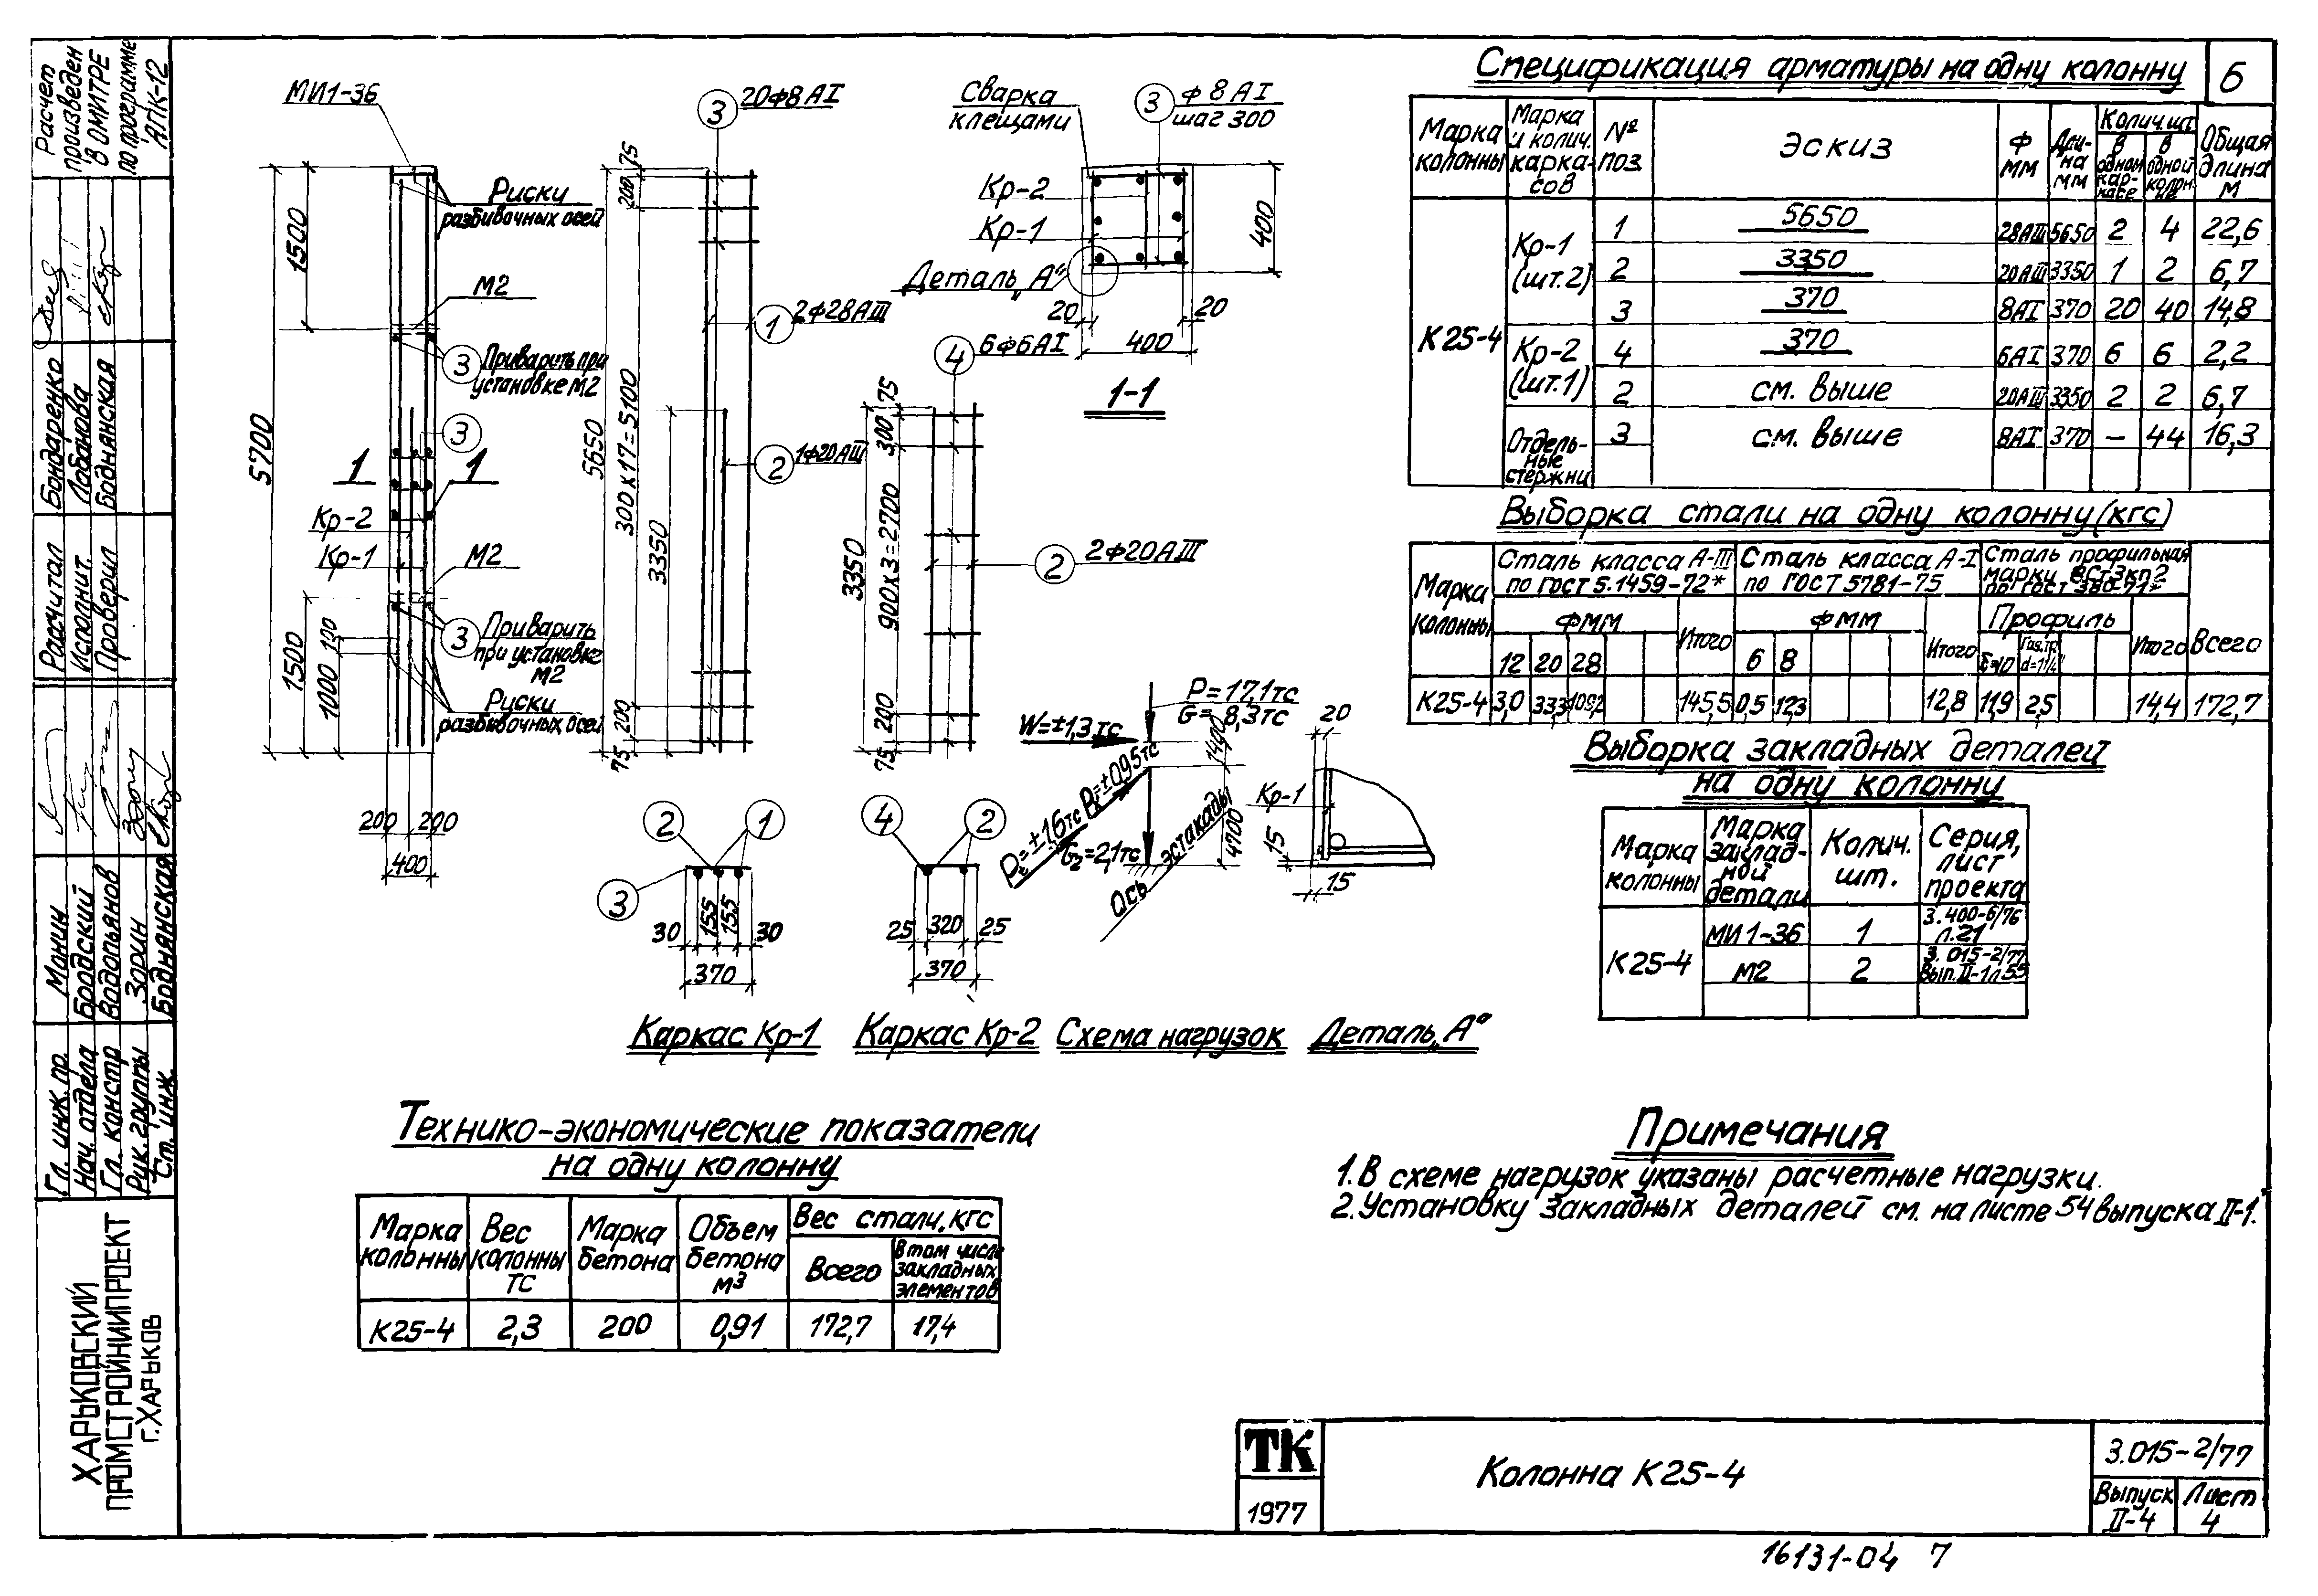 Расчет
произведен
в ОМИТРЕ
по программе
АПК-12
Бондаренко
Лобанова
Боднянская
Рассчитал
Исполнит.
Проверил
Монин
Бродский
Водопьянов
Зорин
Боднянская
Гл. инж. пр.
Нач. отдела
Гл. констр
Рук. группы
Ст. инж.
ХАРЬКОВСКИЙ
ПРОМСТРОЙНИИПРОЕКТ
г. ХАРЬКОВ
МИ1-36
Риски
разбивочных осей
1500
М2
3 Приварить при
установке М2
5700
3
1 1
Кр-2
Кр-1
М2
3 Приварить
при установке
М2
1500
1000 100
Риски
разбивочных осей
200 200
400
3 20ф8АI
75
200
1 2ф28АIII
5650
300х17=5100
2 1ф20АIII
3350
200
75
2 1
3
30 155 155 30
370
Каркас Кр-1
4 6ф6АI
75
300
3350
900х3=2700
2 2ф20АIII
200
75
4 2
25 320 25
370
Каркас Кр-2
Сварка
клещами
3 ф8АI
шаг 300
Кр-2
Кр-1
Деталь „А“
400
20 20
400
1-1
P=17,1тс
G=8,3тс
W=±1,3тс
1400
4700
G2=2,1тс
Ось эстакады
Схема нагрузок
20
Кр-1
15
15
Деталь „А“
Спецификация арматуры на одну колонну
6
Марка колонны
Марка и колич. каркасов
№ поз.
Эскиз
Ф мм
Длина мм
Колич. шт
в одном каркасе
в одной колонне
Общая длина м
К25-4
Кр-1 (шт.2) 1 5650 28АIII 5650 2 4 22,6
2 3350 20АIII 3350 1 2 6,7
3 370 8АI 370 20 40 14,8
Кр-2 (шт.1) 4 370 6АI 370 6 6 2,2
2 см. выше 20АIII 3350 2 2 6,7
Отдельные стержни 3 см. выше 8АI 370 — 44 16,3
Выборка стали на одну колонну (кгс)
Марка колонны
Сталь класса А-III
по ГОСТ 5.1459-72*
Сталь класса А-I
по ГОСТ 5781-75
Сталь профильная
марки ВСт3кп2
по ГОСТ 380-71*
ФММ Итого ФММ Итого Профиль Итого Всего
12 20 28 6 8 Газ.тр. d=1 1/4"
К25-4 3,0 33,3 109,2 145,5 0,5 12,3 12,8 11,9 2,5 14,4 172,7
Выборка закладных деталей
на одну колонну
Марка колонны
Марка закладной детали
Колич. шт.
Серия, лист проекта
К25-4
МИ1-36 1 3.400-6/76 л.21
М2 2 3.015-2/77 Вып. II-1 л55
Технико-экономические показатели
на одну колонну
Марка колонны
Вес колонны ТС
Марка бетона
Объем бетона м3
Вес стали, кгс
Всего
в том числе закладных элементов
К25-4 2,3 200 0,91 172,7 17,4
Примечания
1. В схеме нагрузок указаны расчетные нагрузки.
2. Установку закладных деталей см. на листе 54 выпуска II-1.
ТК
1977
Колонна К25-4
3.015-2/77
Выпуск II-4
Лист 4
16131-04 7